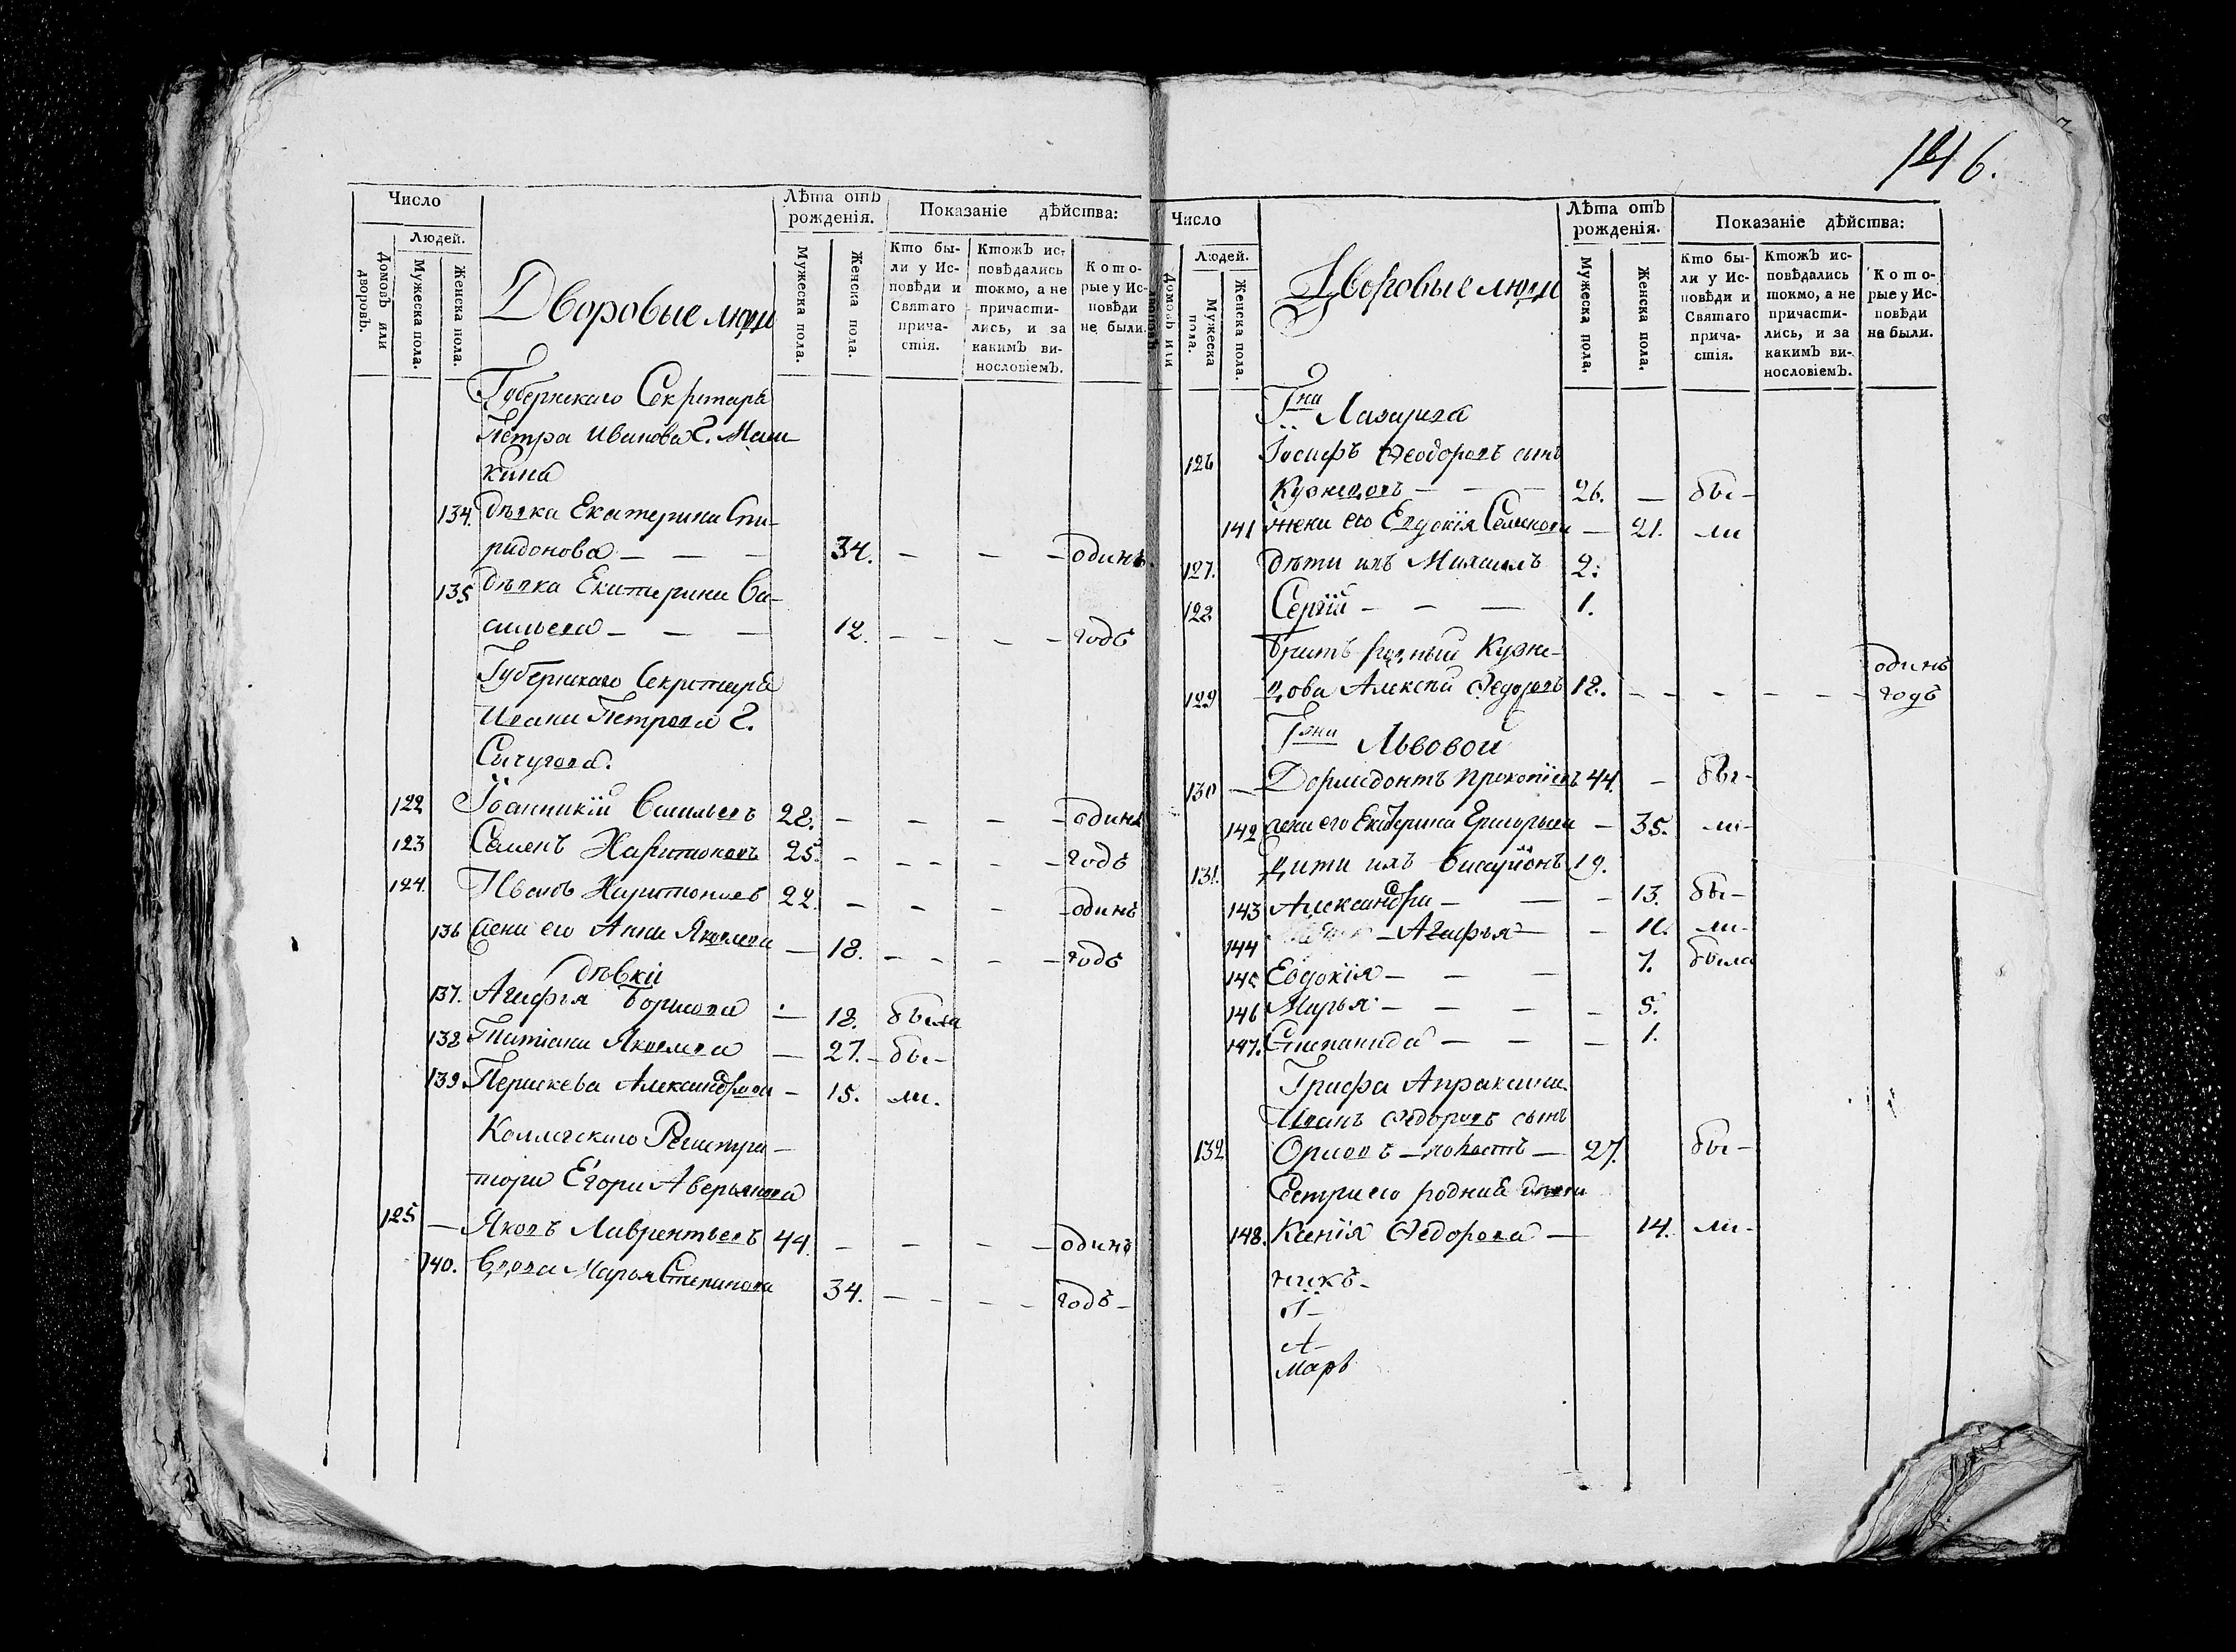 146.
Число
Людей.
Домовъ или дворовъ.
Мужеска пола.
Женска пола.
Дворовые люди
Лѣта отъ рожденія.
Мужеска пола.
Женска пола.
Показаніе дѣйства:
Кто были у Исповѣди и Святаго причастія.
Ктожъ исповѣдались токмо, а не причастились, и за какимъ винословіемъ.
Которые у Исповѣди не были.
Губернскаго Секретаря
Петра Иванова Г.
кина
134. дѣвка Екатерина Спи-
ридонова — — — 34. — — — одинъ
135 дѣвка Екатерина Ва-
сильева — — — 12. — — — — годъ
Губернскаго Секретаря
Ивана Петрова Г.
Сычугова.
122 Іоанникій Васильевъ 28. — — — — одинъ
123 Семенъ Харитоновъ 25. — — — — годъ
124. Иванъ Харитоновъ 22. — — — — одинъ
136 жена его Анна Яковлева — 18. — — — — годъ
дѣвки
137. Агафья Борисова — 18. была
138 Татіана Яковлева — 27. — бы-
139 Параскева Александрова — 15. ли.
Коллегскаго Регистра-
тора Егора Аверьянова
125 — Яковъ Лаврентьевъ 44. — — — — одинъ
140. Вдова Марья Степанова 34. — — — — годъ —
Число
Людей.
Домовъ или дворовъ.
Мужеска пола.
Женска пола.
Дворовые люди
Лѣта отъ рожденія.
Мужеска пола.
Женска пола.
Показаніе дѣйства:
Кто были у Исповѣди и Святаго причастія.
Ктожъ исповѣдались токмо, а не причастились, и за какимъ винословіемъ.
Которые у Исповѣди не были.
Гна Лазарева
126 Іосифъ Ѳеодоровъ сынъ
Кузнецовъ — — — 26. — бы-
141 жена его Евдокія Семенова — 21. ли
127. дѣти ихъ Михаилъ 2.
128 Сергій — — — 1.
братъ родный Кузне-
одинъ
129 цова Алексѣй Ѳедоровъ 18. — — — — — годъ
Гжи Львовой
130 — Дормидонтъ Прокопіевъ 44. — бы-
142 жена его Екатерина Григорьева — 35. ли-
131. Дѣти ихъ Висаріонъ 19.
143 Александра — — — 13. бы-
144 — Агафья — — 11. ли-
145 Евдокія — — — 7. была
146 Марья — — — — 5.
147. Степанида — — — 1.
Графа Апраксина
Иванъ Ѳедоровъ сынъ
132 Орловъ — холостъ — 27. бы-
Сестра его родная дѣвка
148. Ксенія Ѳедорова — 14. ли-
никъ-
А-
марѣ